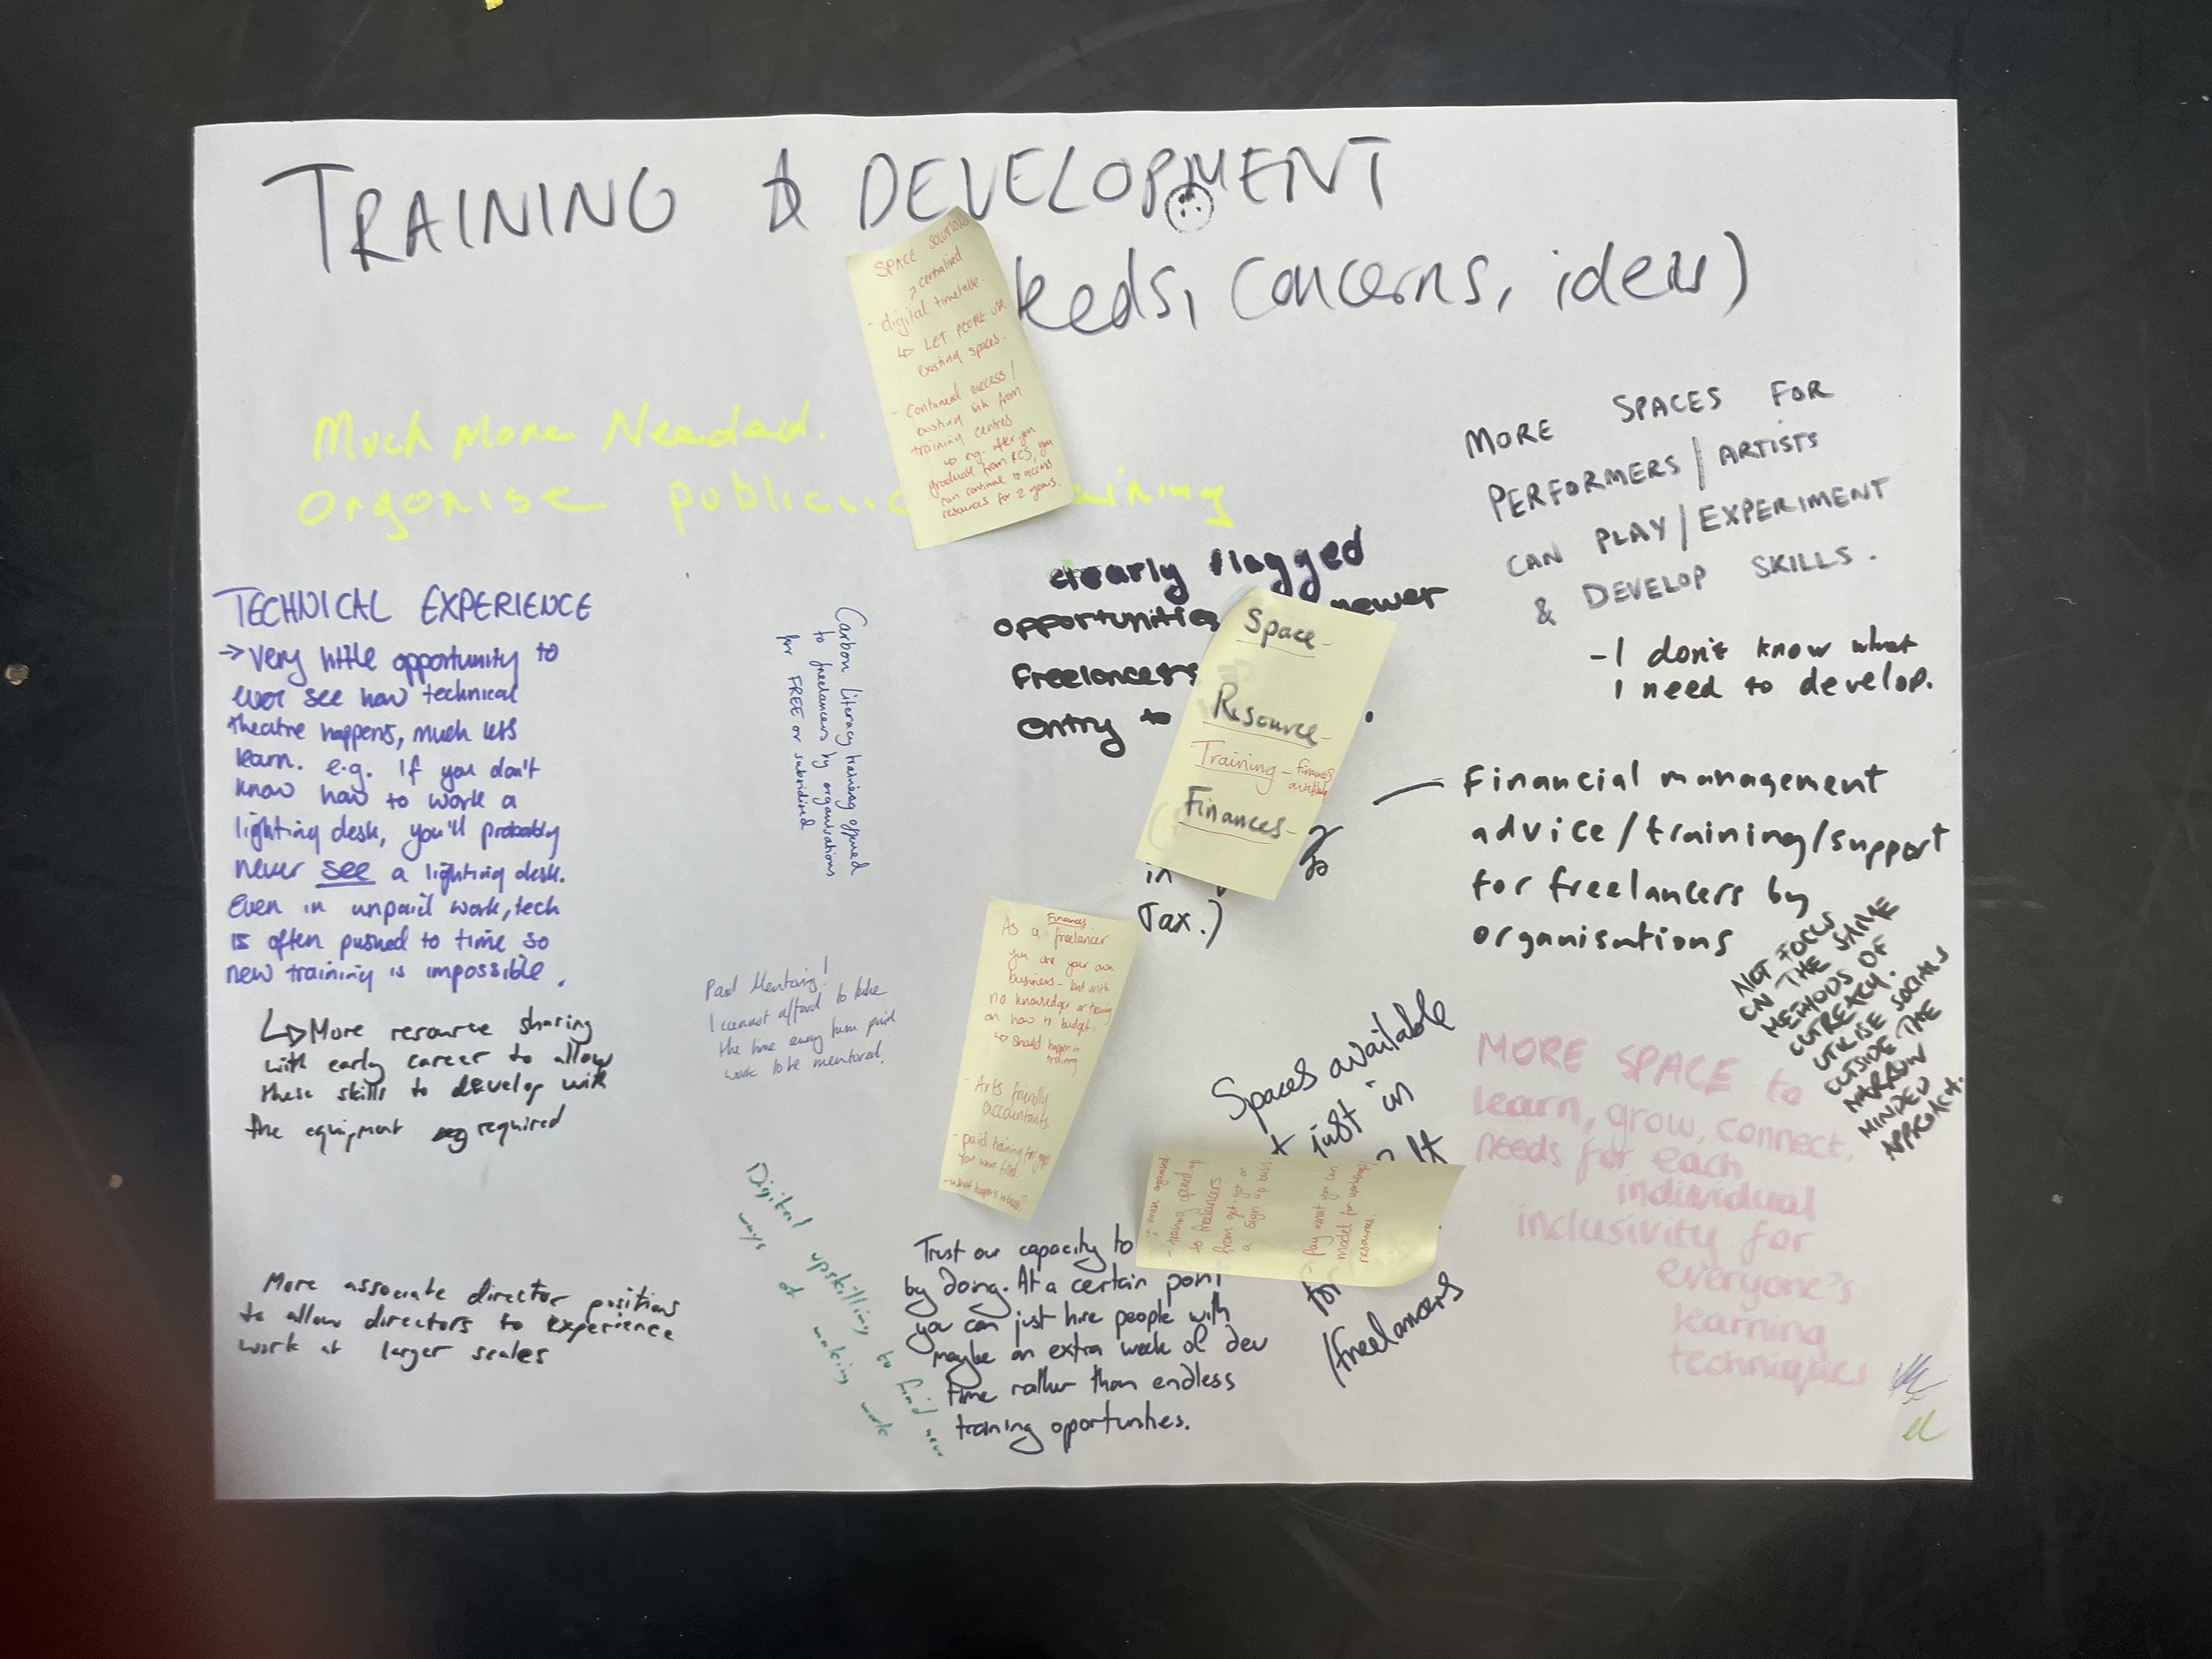 TRAINING & DEVELOPMENT
eeds, Concerns, ideas)
SPACE SOLUTIONS
centralised
- digital timetable.
↳ LET PEOPLE USE
existing spaces.
- Continued access/
existing link from
training centres
↳ e.g. after you
graduate from RCS, you
can continue to access
resources for 2 years.
Much More Needed.
Organise
clearly flagged
opportunities newer
freelancers
entry to .
MORE SPACES FOR
PERFORMERS/ARTISTS
CAN PLAY/EXPERIMENT
& DEVELOP SKILLS.
- I don't know what
I need to develop.
TECHNICAL EXPERIENCE
→ very little opportunity to
ever see how technical
theatre happens, much less
learn. e.g. If you don't
know how to work a
lighting desk, you'll probably
never see a lighting desk.
Even in unpaid work, tech
is often pushed to time so
new training is impossible.
↳ More resource sharing
with early career to allow
these skills to develop with
the equipment required
More associate director positions
to allow directors to experience
work at larger scales
Carbon literacy training opened
to freelancers by organisations
for FREE or subsidised
Space -
Resource -
Training - finances
available
Finances -
in
Tax.)
Financial management
advice/training/support
for freelancers by
organisations
NOT FOCUS
ON THE SAME
METHODS OF
OUTREACH.
UTILISE SOCIALS
OUTSIDE THE
NARROW
MINDED
APPROACH.
Paid Mentoring!
I cannot afford to take
the time away from paid
work to be mentored.
Finances
As a freelancer
you are your own
business - but with
no knowledge or training
on how to budget.
↳ Should happen in
training
- Arts friendly
accountants
- paid training for gaps
you want filled.
- What happens to
Spaces available
just in
for
/freelancers
- training opened up
to freelancers
from get-go on
a sign up basis
- Pay what you can
model for workshops/
resources.
MORE SPACE to
learn, grow, connect,
needs for each
individual
inclusivity for
everyone's
learning
techniques
Digital upskilling to find new
ways of making work
Trust our capacity to
by doing. At a certain point
you can just hire people with
maybe an extra week of dev
time rather than endless
training oportunities.